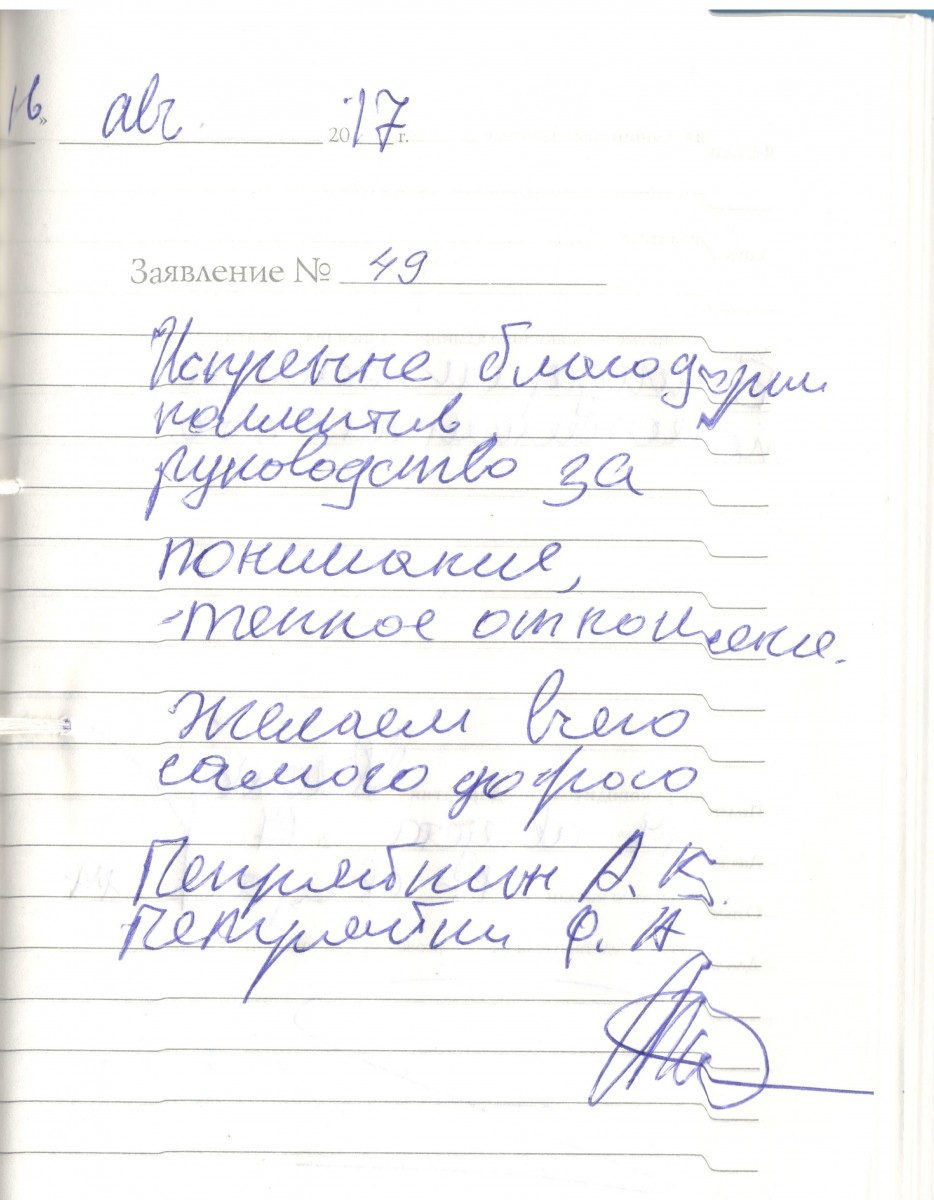 16» авг. 2017 г.
Заявление № 49
Искренне благодарим
коллектив,
руководство за
понимание,
теплое отношение.
Желаем всего
самого доброго
А. К.
Ф. А